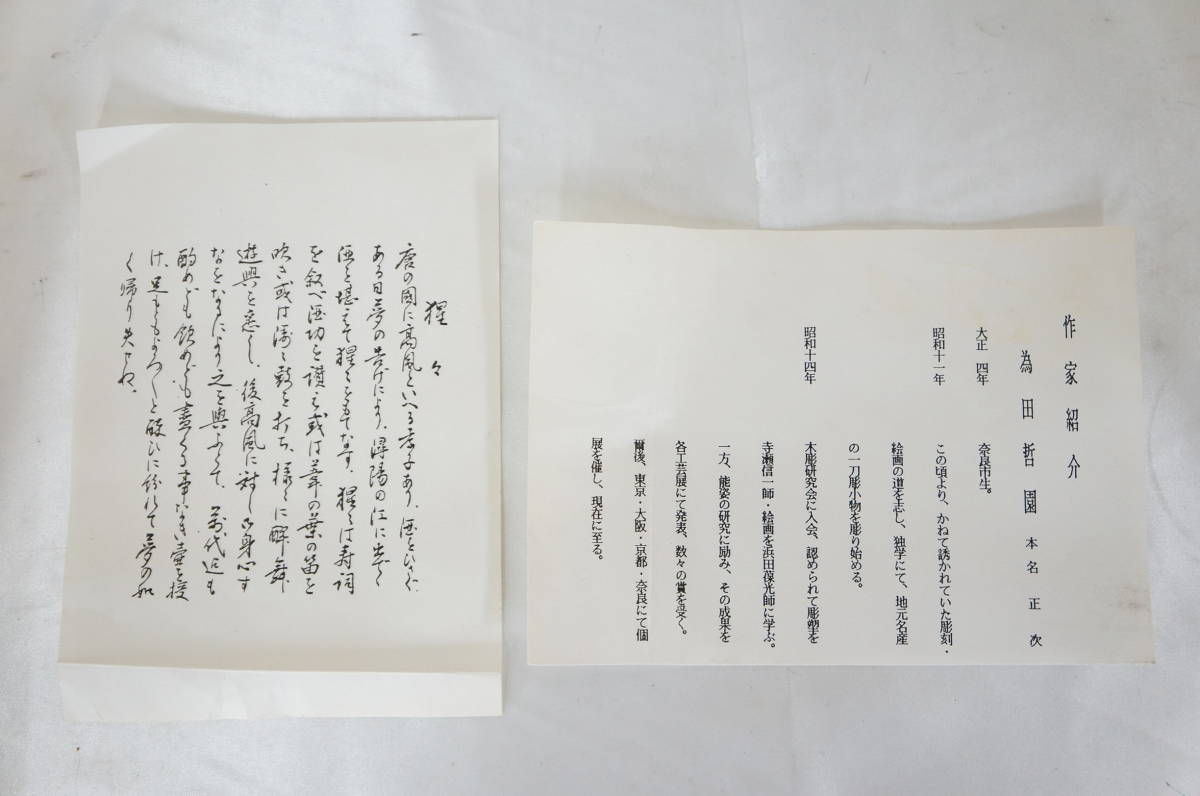 作家紹介
為田哲園 本名 正次
大正 四年 奈良市生。
昭和十一年 この頃より、かねて誘かれていた彫刻・
絵画の道を志し、独学にて、地元名産
の一刀彫小物を彫り始める。
昭和十四年 木彫研究会に入会、認められて彫塑を
寺瀬信一師・絵画を浜田保光師に学ぶ。
一方、能姿の研究に励み、その成果を
各工芸展にて発表、数々の賞を受く。
爾後、東京・大阪・京都・奈良にて個
展を催し、現在に至る。
猩々
唐の國に高風といへる孝子あり、酒をひさぐ
ある日夢の告げにより、潯陽の江に出でく
酒を堪えて猩々をもてなす。猩々は寿詞
を敍べ酒功を讃え或は葦の葉の笛を
吹き或は濤々鼓を打ち、様々に酔舞
遊興を悉くし、後高風に対し御身心す
なをなるにより之を與ふとて、萬代迄も
酌めども飲めども盡くる事なき壷を授
け、足もともよろよろと酔ひに紛れて夢の如
く帰り失せね。